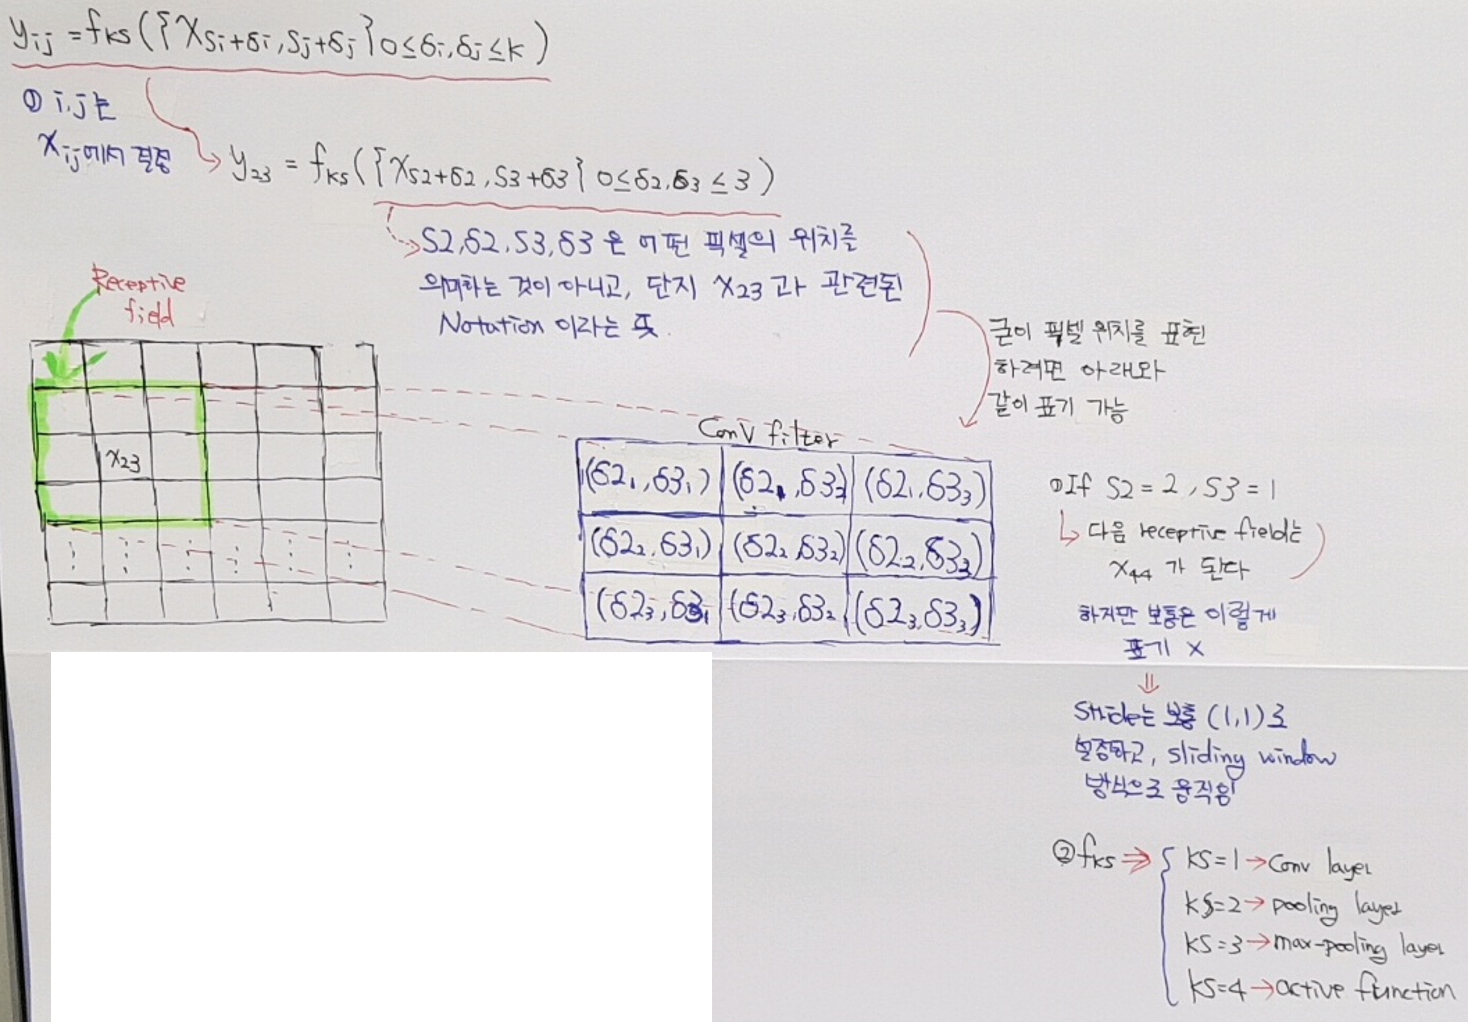 yij = fks({Xsi+δi, sj+δj} 0≤δi,δj≤k)
① i,j는
xij에서 결정
y23 = fks({Xs2+δ2, s3+δ3} 0≤δ2,δ3≤3)
S2,δ2,S3,δ3 은 어떤 픽셀의 위치를
의미하는 것이 아니고, 단지 x23 과 관련된
Notation 이라는 뜻.
굳이 픽셀 위치를 표현
하려면 아래와
같이 표기 가능
Receptive
field
x23
Conv filter
(δ2₁,δ3₁) (δ2₁,δ3₂) (δ2₁,δ3₃)
(δ2₂,δ3₁) (δ2₂,δ3₂) (δ2₂,δ3₃)
(δ2₃,δ3₁) (δ2₃,δ3₂) (δ2₃,δ3₃)
If S2=2, S3=1
다음 receptive field는
x44 가 된다
하지만 보통은 이렇게
표기 X
Stride는 보통 (1,1)로
설정하고, sliding window
방식으로 움직임
② fks ⇒ { ks=1 → Conv layer
ks=2 → pooling layer
ks=3 → max-pooling layer
ks=4 → active function